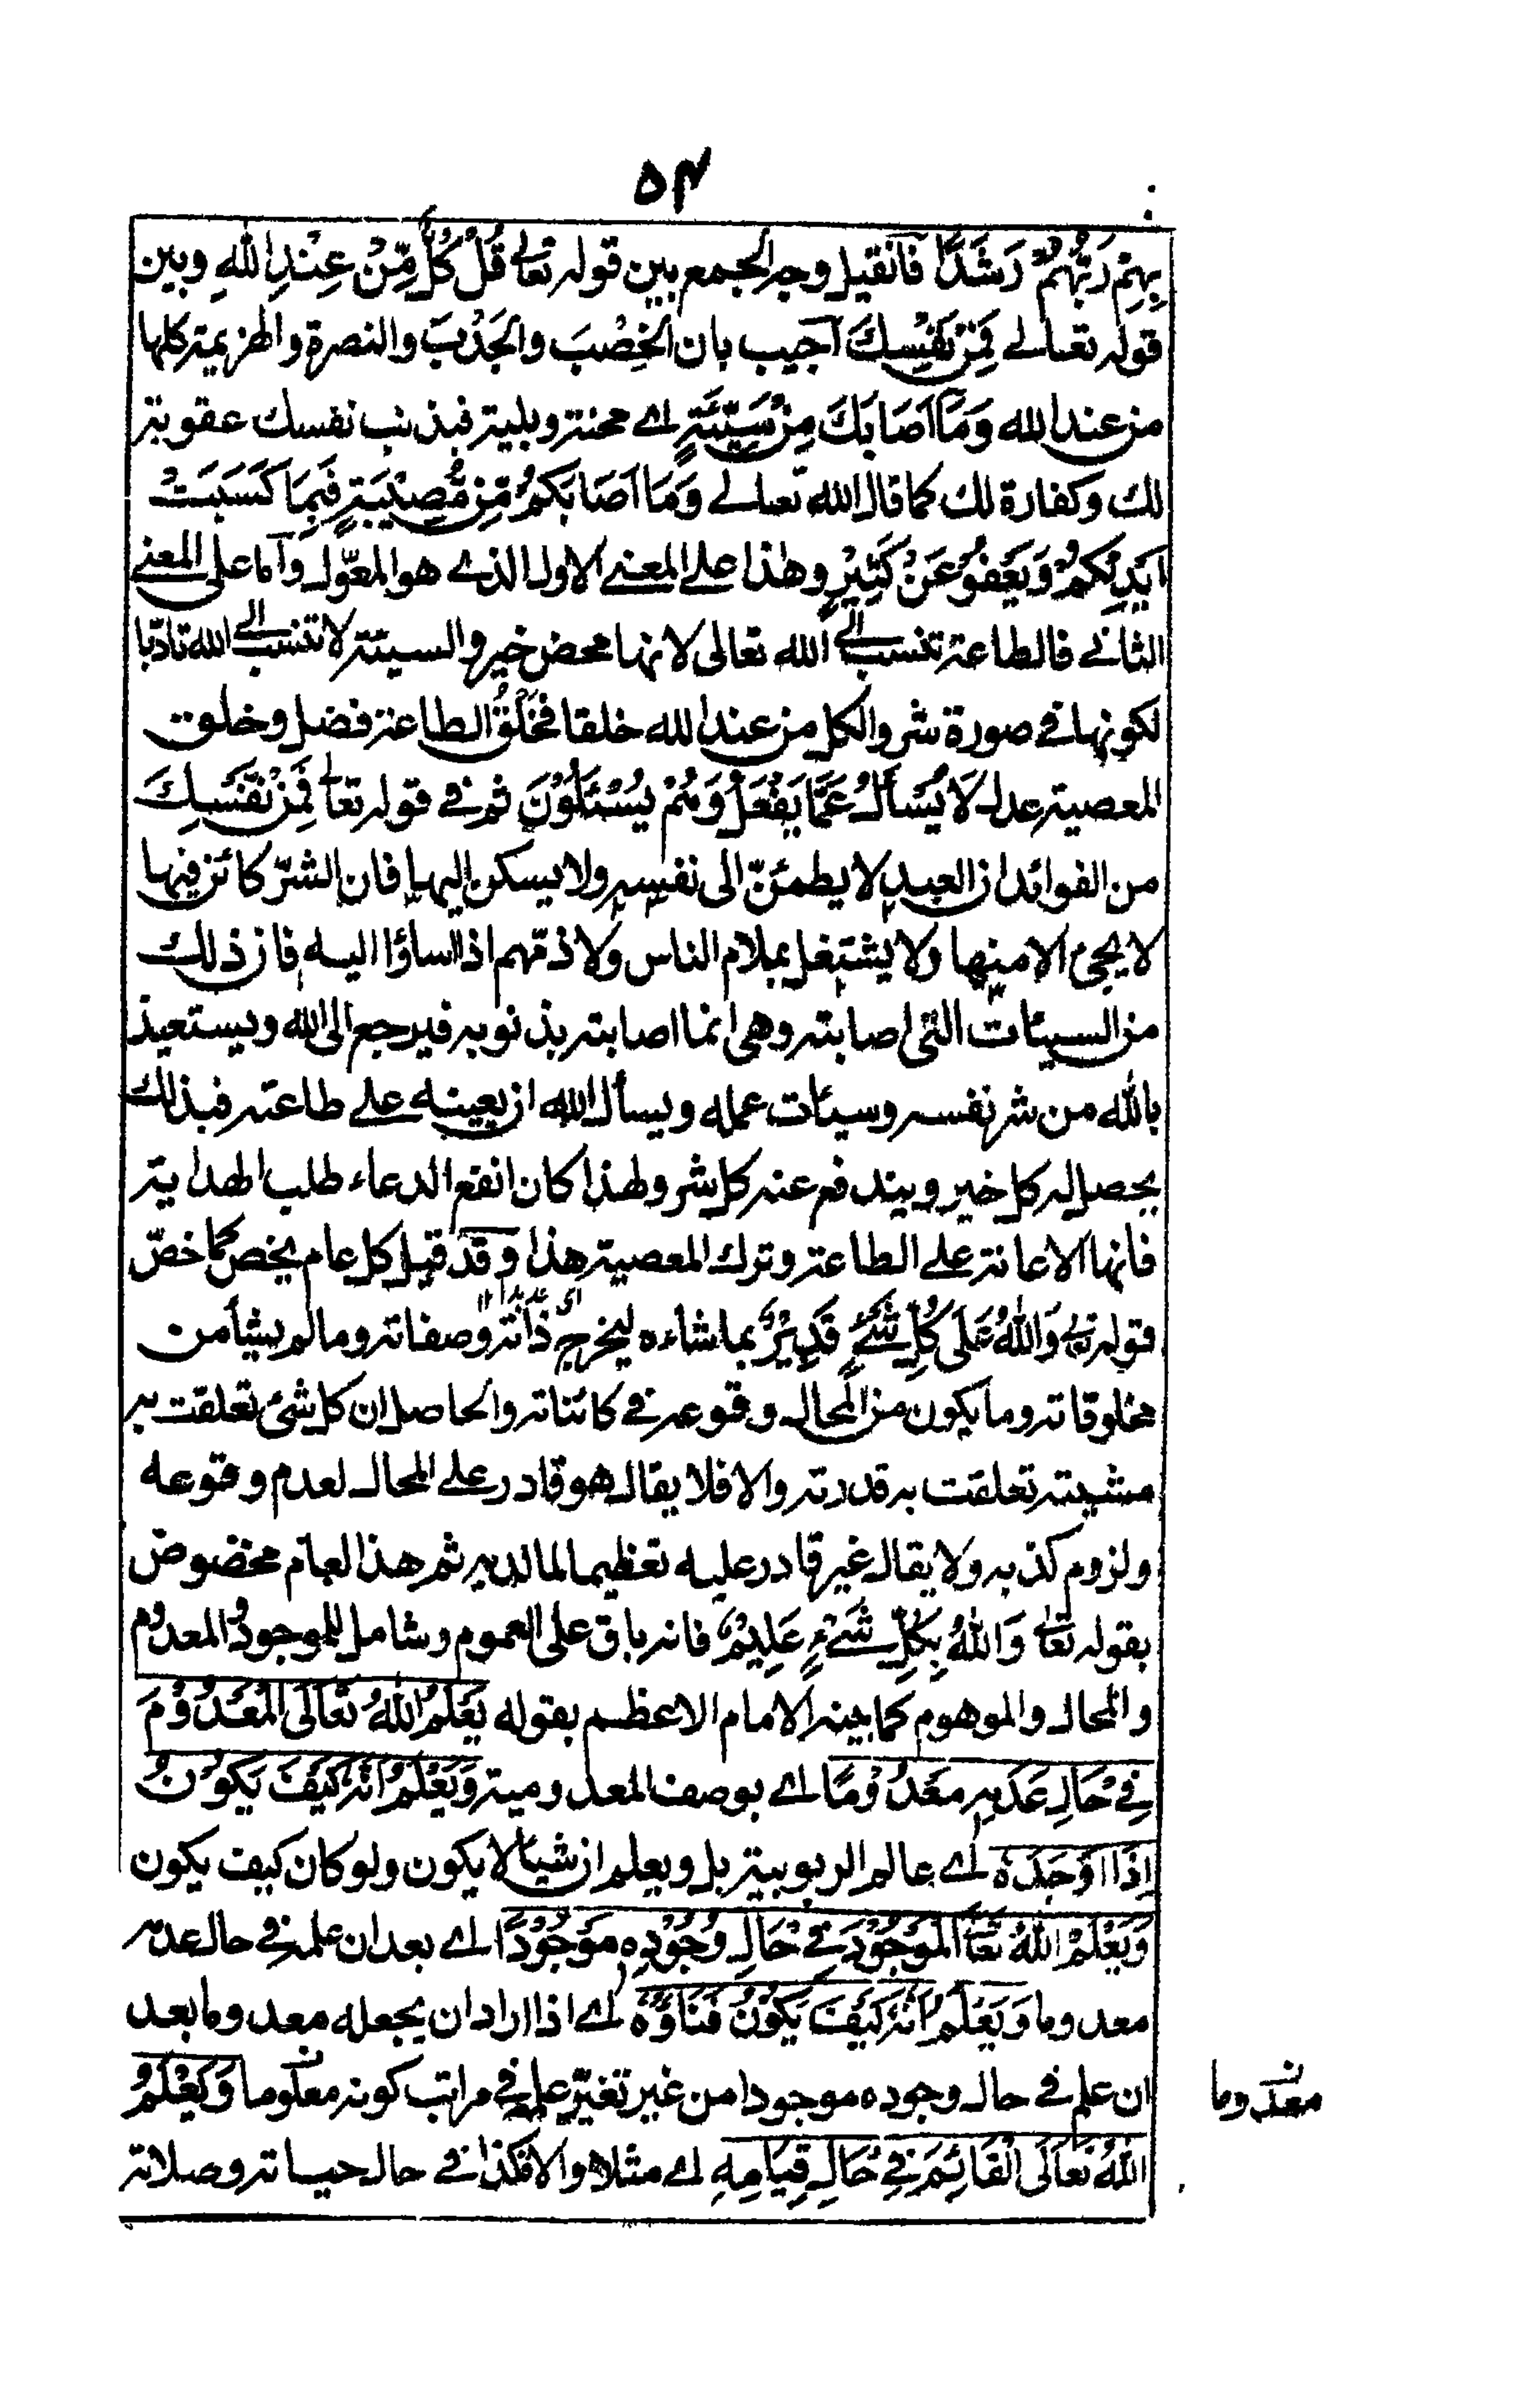 ۵۴
بِهِمْ رَبُّهُمْ رَشَدًا فان قيل وجه الجمع بين قوله تعالى قُلْ كُلٌّ مِّنْ عِنْدِ اللهِ وبين
قوله تعالى فَمِنْ نَفْسِكَ اجيب بان الخِصْبَ والجَدْبَ والنصرة والهزيمة كلها
من عند الله وَمَا اَصَابَكَ مِنْ سَيِّئَةٍ اے محنة وبلية فبذنب نفسك عقوبة
لك وكفارة لك كما قال الله تعالى وَمَا اَصَابَكُمْ مِّنْ مُّصِيْبَةٍ فَبِمَا كَسَبَتْ
اَيْدِيْكُمْ وَيَعْفُوْ عَنْ كَثِيْرٍ وهذا على المعنى الاول الذے هو المعوّل واما على المعنى
الثانى فالطاعة تنسب الى الله تعالى لانها محض خير والسيئة لا تنسب الى الله تادّبا
لكونها فى صورة شر والكل من عند الله خلقا فَخَلْقُ الطاعة فضل وخلق
المعصية عدل لَا يُسْأَلُ عَمَّا يَفْعَلُ وَهُمْ يُسْئَلُوْنَ ثم فى قوله تعالى فَمِنْ نَّفْسِكَ
من الفوائد ان العبد لا يطمئنّ الى نفسه ولا يسكن اليها فان الشرّ كائن فيها
لا يجئ الا منها ولا يشتغل بملام الناس ولا ذمّهم اذا اساؤا اليه فان ذلك
من السيئات التى اصابته وهى انما اصابته بذنوبه فيرجع الى الله ويستعيذ
بالله من شر نفسه وسيئات عمله ويسأل الله ان يعينه على طاعته فبذلك
يحصل له كل خير ويندفع عنه كل شر ولهذا كان انفع الدعاء طلب الهداية
فانها الاعانة على الطاعة وترك المعصية هذا وقد قيل كل عام يخص كما خصّ
قوله تعالى وَاللهُ عَلَى كُلِّ شَىْءٍ قَدِيْرٌ بما شاءه ليخرج ذاته وصفاته وما لم يشأ من
مخلوقاته وما يكون من المحال وقوعه فى كائناته والحاصل ان كل شئ تعلقت به
مشيته تعلقت به قدرته والا فلا يقال هو قادر على المحال لعدم وقوعه
ولزوم كذبه ولا يقال غير قادر عليه تعظيما لما لديه ثم هذا العام مخصوص
بقوله تعالى وَاللهُ بِكُلِّ شَىْءٍ عَلِيْمٌ فانه باق على العموم وشامل للموجود والمعدوم
والمحال والموهوم كما بينه الامام الاعظم بقوله يَعْلَمُ اللهُ تَعَالَى الْمَعْدُوْمَ
فِىْ حَالِ عَدَمِهِ مَعْدُوْمًا اے بوصف المعدومية وَيَعْلَمُ اَنَّهُ كَيْفَ يَكُوْنُ
اِذَا اَوْجَدَهُ اے عالم الربوبية بل ويعلم ان شيئا لا يكون ولو كان كيف يكون
وَيَعْلَمُ اللهُ تَعَالَى الْمَوْجُوْدَ فِىْ حَالِ وُجُوْدِهِ مَوْجُوْدًا اے بعد ان علمه فى حال عدمه
معدوما وَيَعْلَمُ اَنَّهُ كَيْفَ يَكُوْنُ فَنَاؤُهُ اے اذا اراد ان يجعله معدوما بعد
ان علم فى حال وجوده موجودا من غير تغيّر علمه فى مراتب كونه معلوما وَيَعْلَمُ
معدوما
اللهُ تَعَالَى الْقَائِمَ فِىْ حَالِ قِيَامِهِ اے مثلا والا فكذا فى حال حياته وصلاته